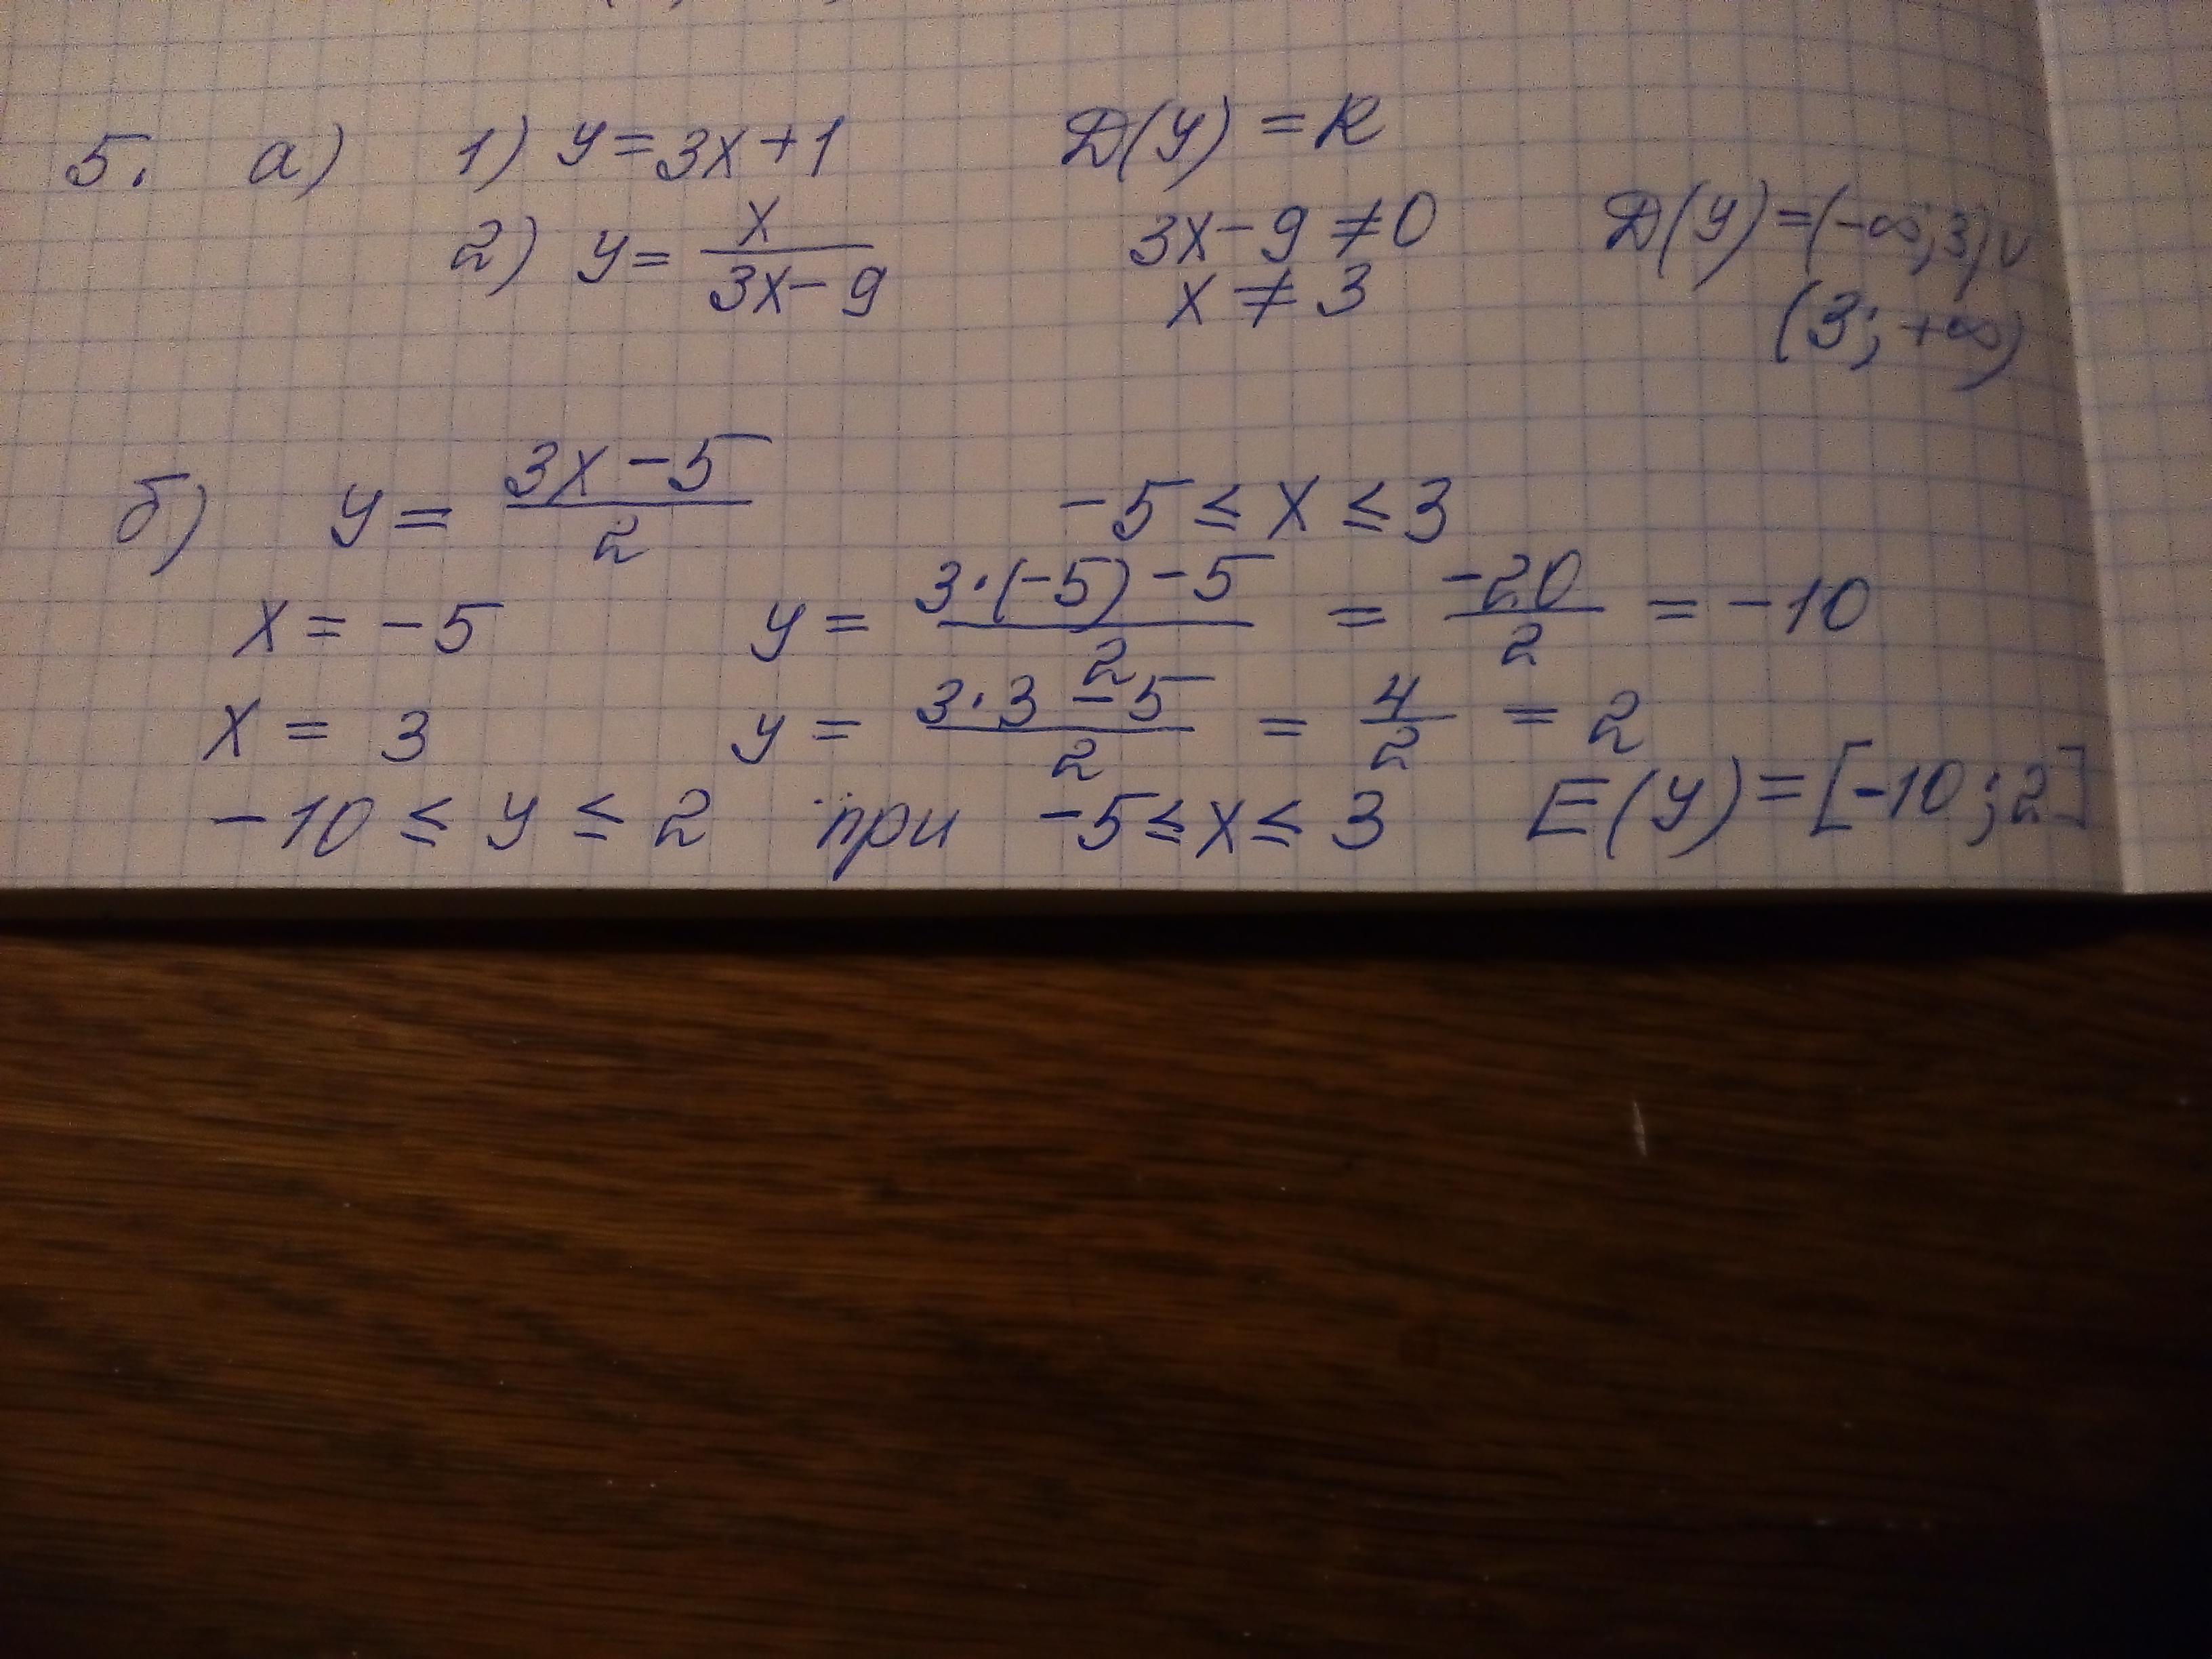 5. а) 1) y = 3x + 1 D(y) = R
2) y = x/(3x - 9) 3x - 9 ≠ 0 D(y) = (-∞; 3) ∪
x ≠ 3 (3; +∞)
б) y = (3x - 5)/2 -5 ≤ x ≤ 3
x = -5 y = (3·(-5) - 5)/2 = -20/2 = -10
x = 3 y = (3·3 - 5)/2 = 4/2 = 2
-10 ≤ y ≤ 2 при -5 ≤ x ≤ 3 E(y) = [-10; 2]